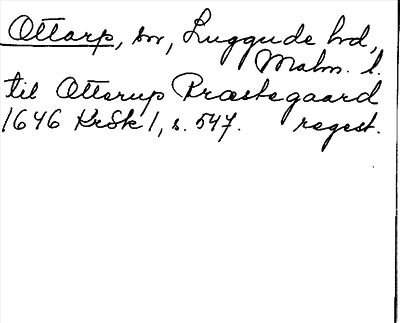 Ottarp, sn, Luggude hd,
Malm. l.
til Otterup Præstegaard
1646 KrSk 1, s. 547. regest.